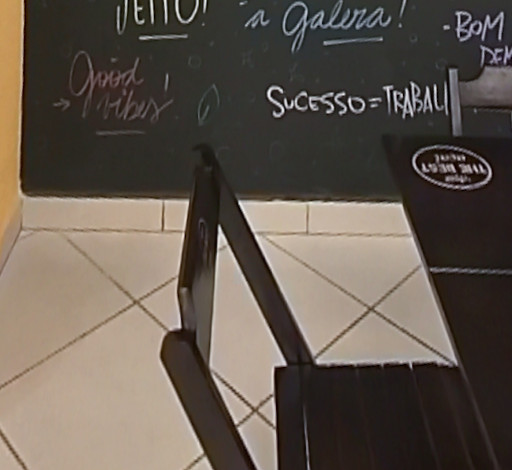 JEITO!
a galera!
- BOM
DEM
Good
→ vibes!
SUCESSO = TRABAL